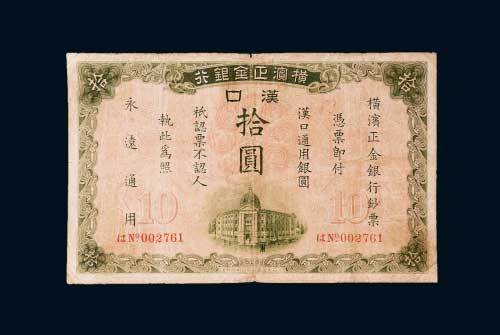 行銀金正濱橫
口漢
拾圓
橫濱正金銀行鈔票
憑票即付
漢口通用銀圓
祇認票不認人
執此爲照
永遠通用
拾
拾
拾
拾
10
10
はNo002761
はNo002761